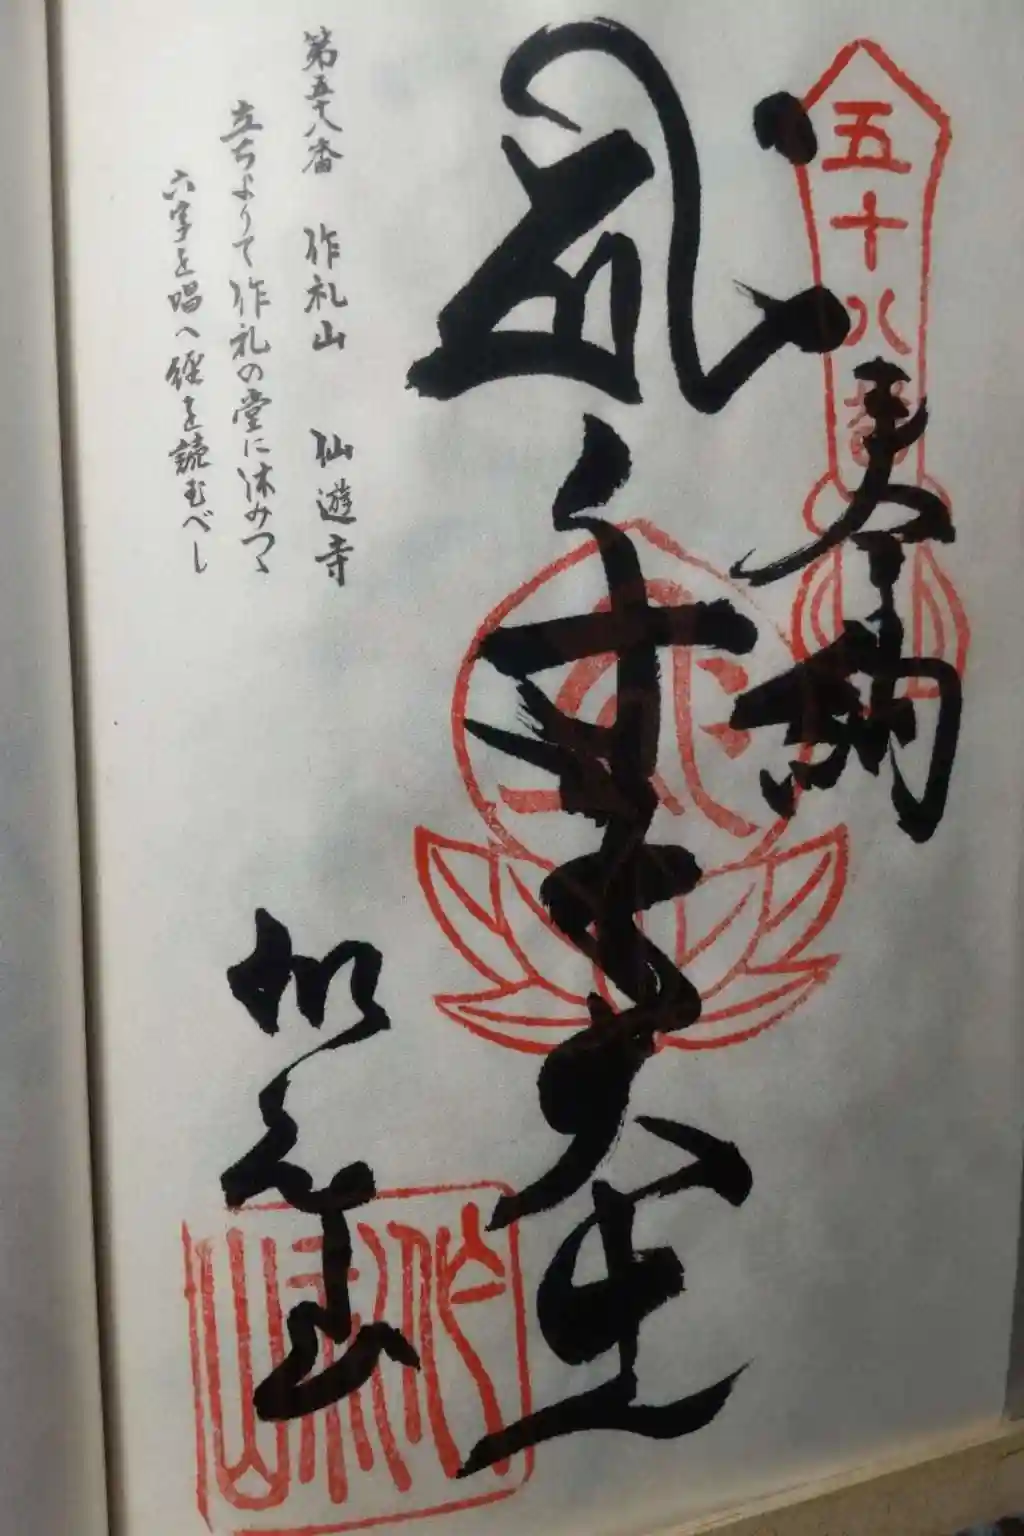 五十八番
奉納
千手大士
仙遊寺
第五十八番 作礼山 仙遊寺
立ちよりて作礼の堂に休みつゝ
六字を唱へ経を読むべし